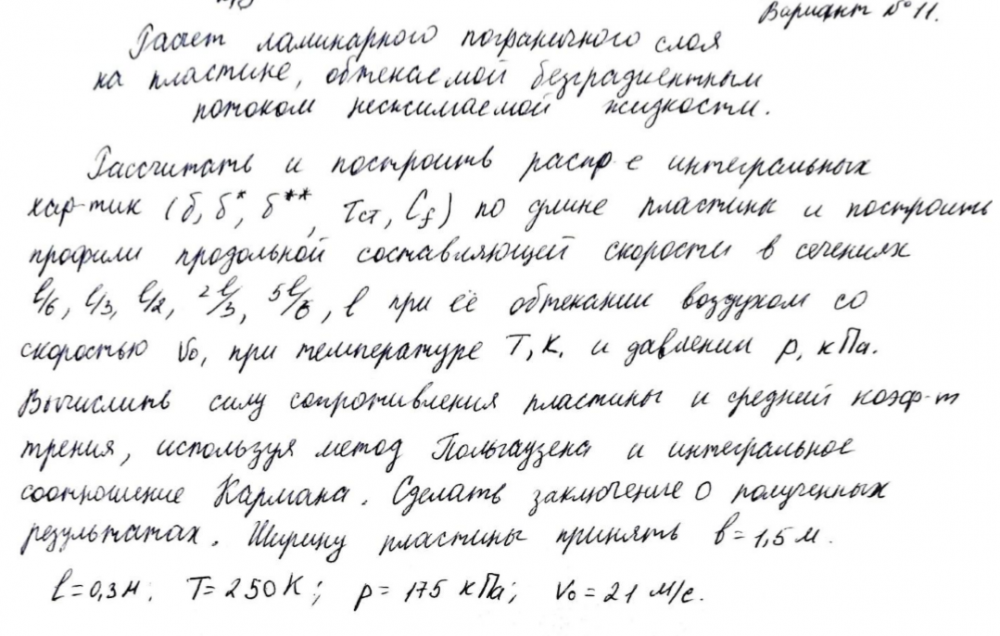 Вариант № 11.
Расчет ламинарного пограничного слоя
на пластине, обтекаемой безградиентным
потоком несжимаемой жидкости.
Рассчитать и построить распр-е интегральных
хар-тик (δ, δ*, δ**, τст, Cf) по длине пластины и построить
профили продольной составляющей скорости в сечениях
l/6, l/3, l/2, 2l/3, 5l/6, l при её обтекании воздухом со
скоростью V₀, при температуре T, К. и давлении p, кПа.
Вычислить силу сопротивления пластины и средний коэф-т
трения, используя метод Польгаузена и интегральное
соотношение Кармана. Сделать заключение о полученных
результатах. Ширину пластины принять b = 1,5 м.
l = 0,3 м; T = 250 К; p = 175 кПа; V₀ = 21 м/с.